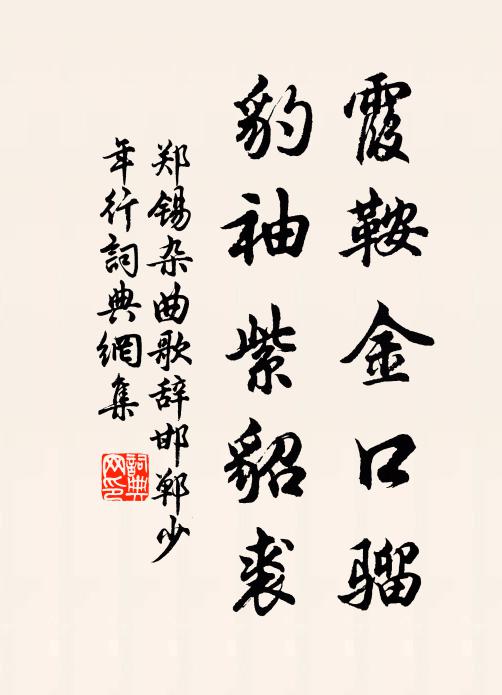 霞鞍金口骝
豹袖紫貂裘
郑锡杂曲歌辞邯郸少
年行詞典網集
詞典
网印